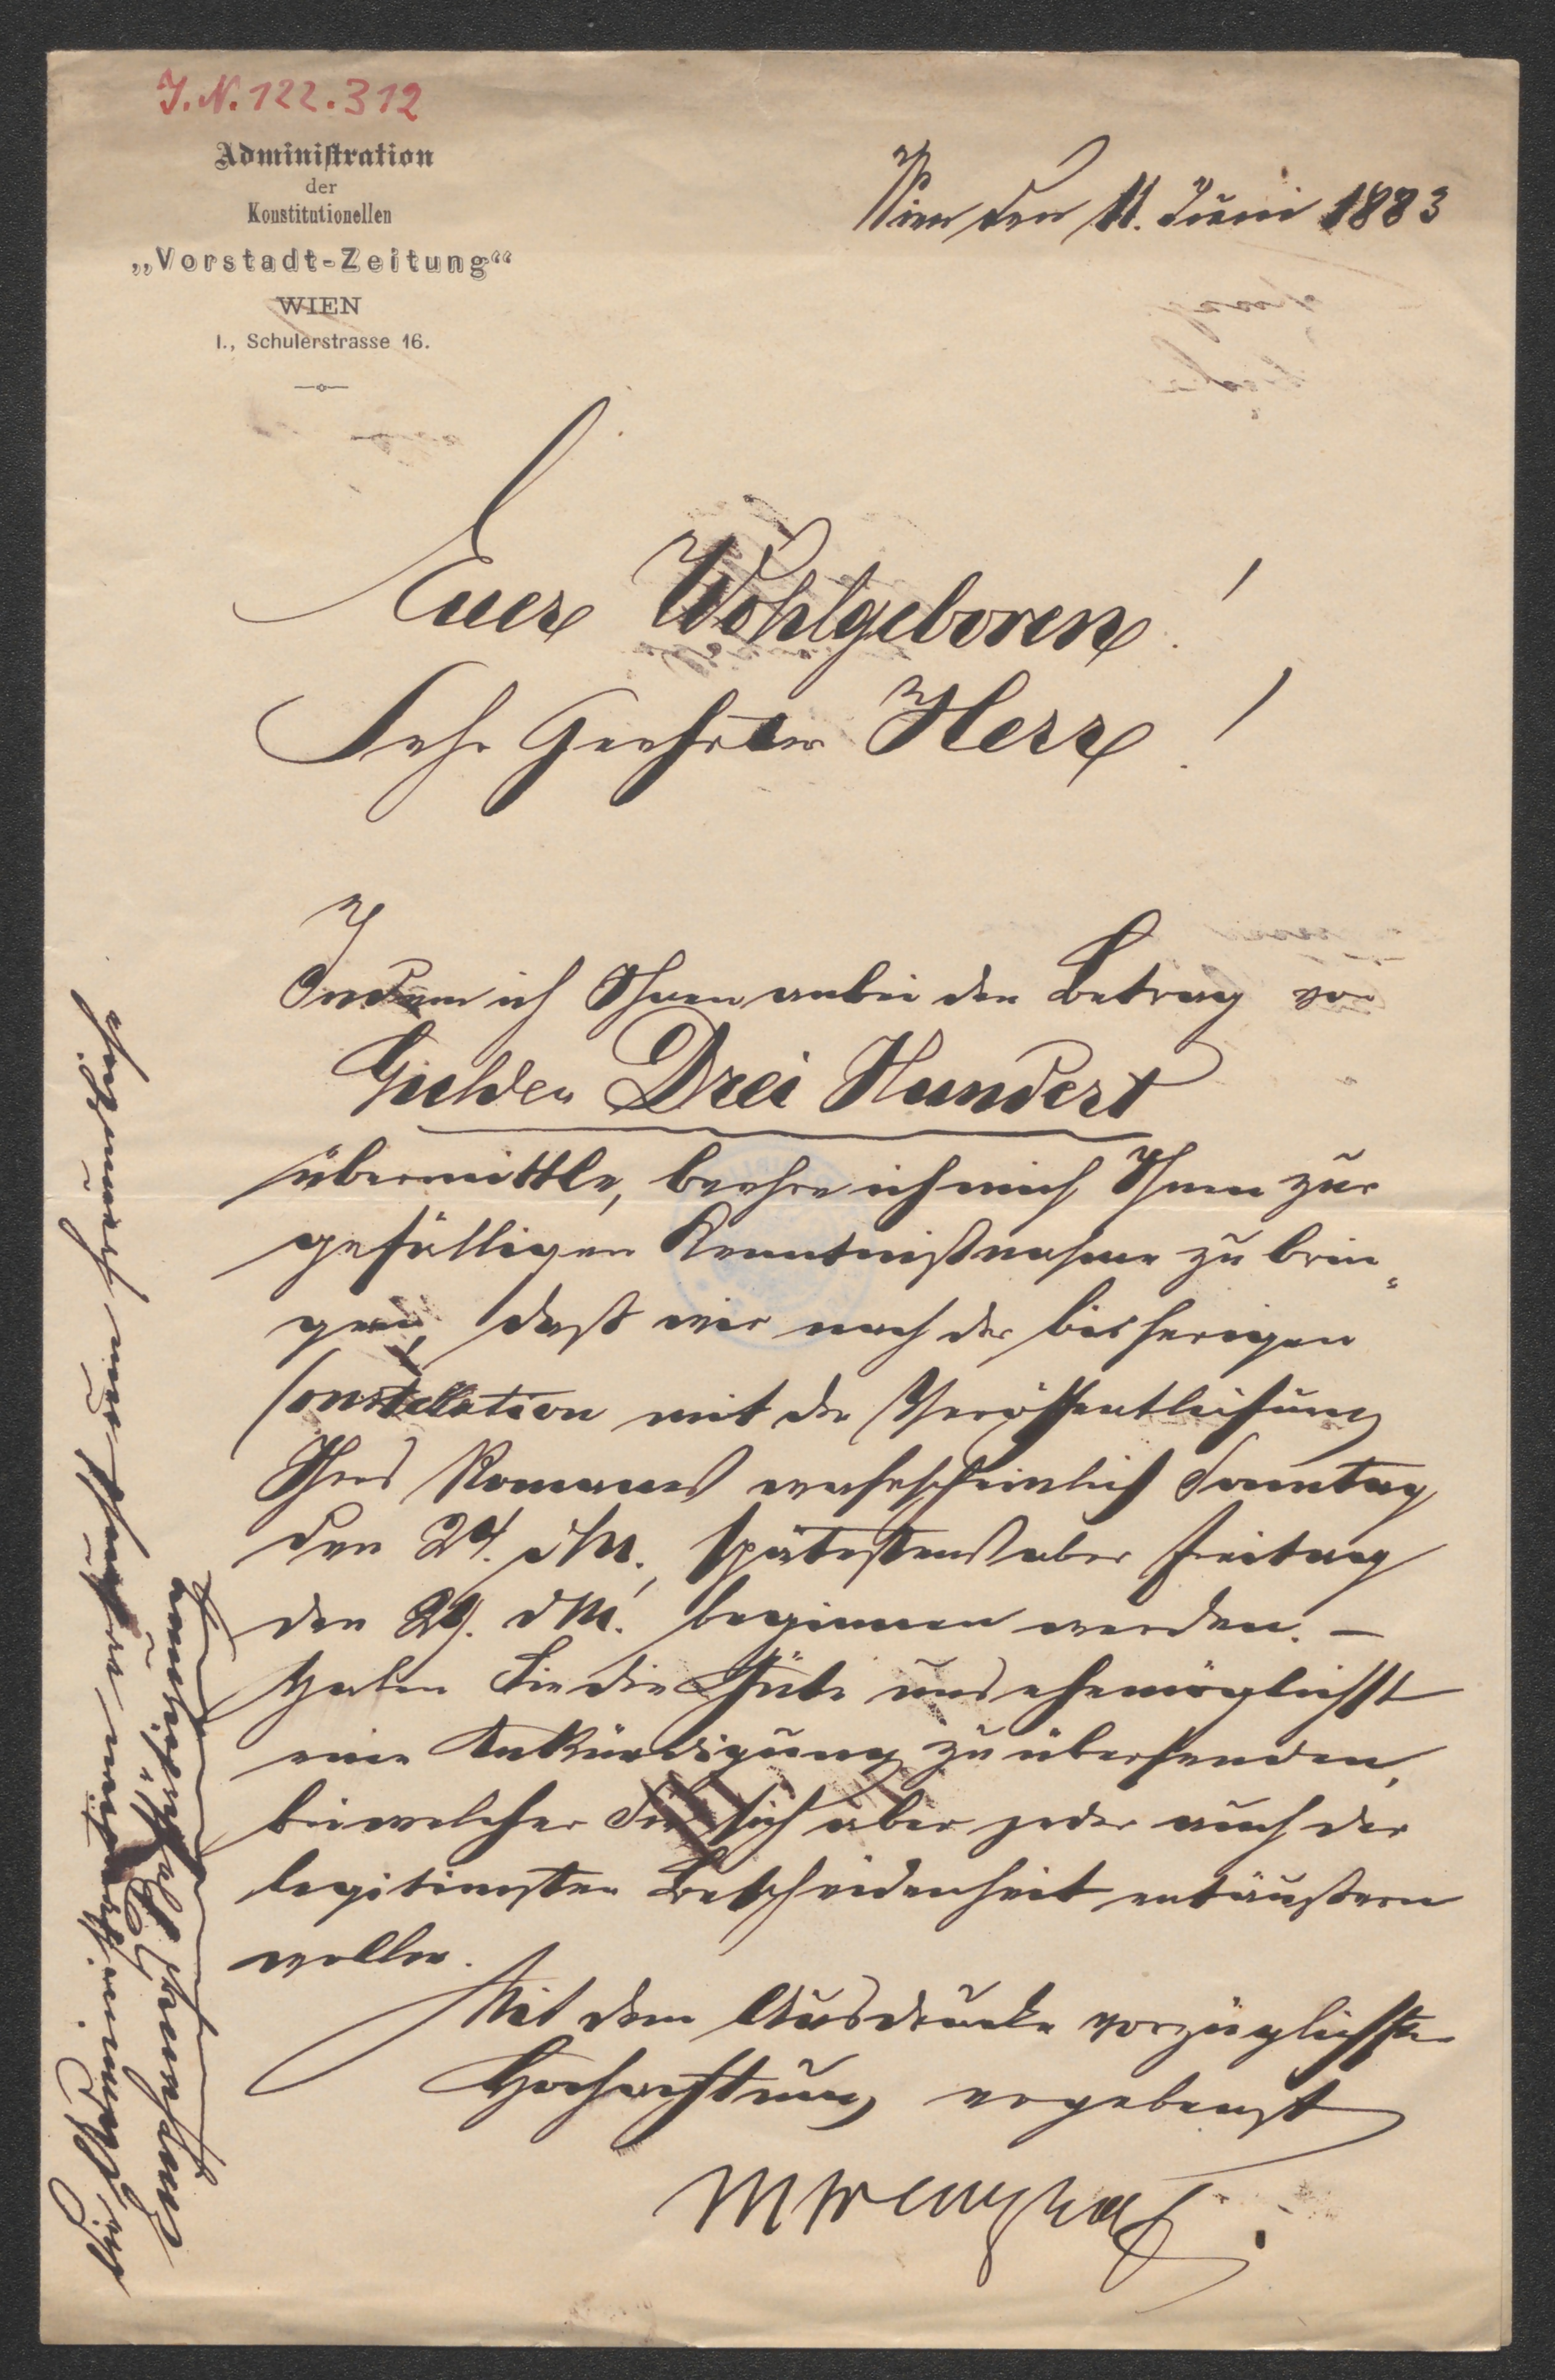 J. N. 122.312
Administration
der
Konstitutionellen
„Vorstadt-Zeitung“
WIEN
I., Schulerstrasse 16.
Wien den 11. Juni 1883
Euer Wohlgeboren!
Sehr Geehrter Herr!
Indem ich Ihnen anbei den Betrag von
Gulden Drei Hundert
übermittle, beehre ich mich Ihnen zur
gefälligen Kenntnißnahme zu brin-
gen, daß wir nach der bisherigen
Constellation mit der Veröffentlichung
Ihres Romanes wahrscheinlich Sonntag
den 24. dM., spätestens aber Freitag
den 29. dM. beginnen werden. –
Haben Sie die Güte uns ehemöglichst
eine Ankündigung zu übersenden,
bei welcher Sie sich aber jeder auch der
legitimsten Bescheidenheit entäußern
wollen.
Mit dem Ausdrucke vorzüglichster
Hochachtung ergebenst